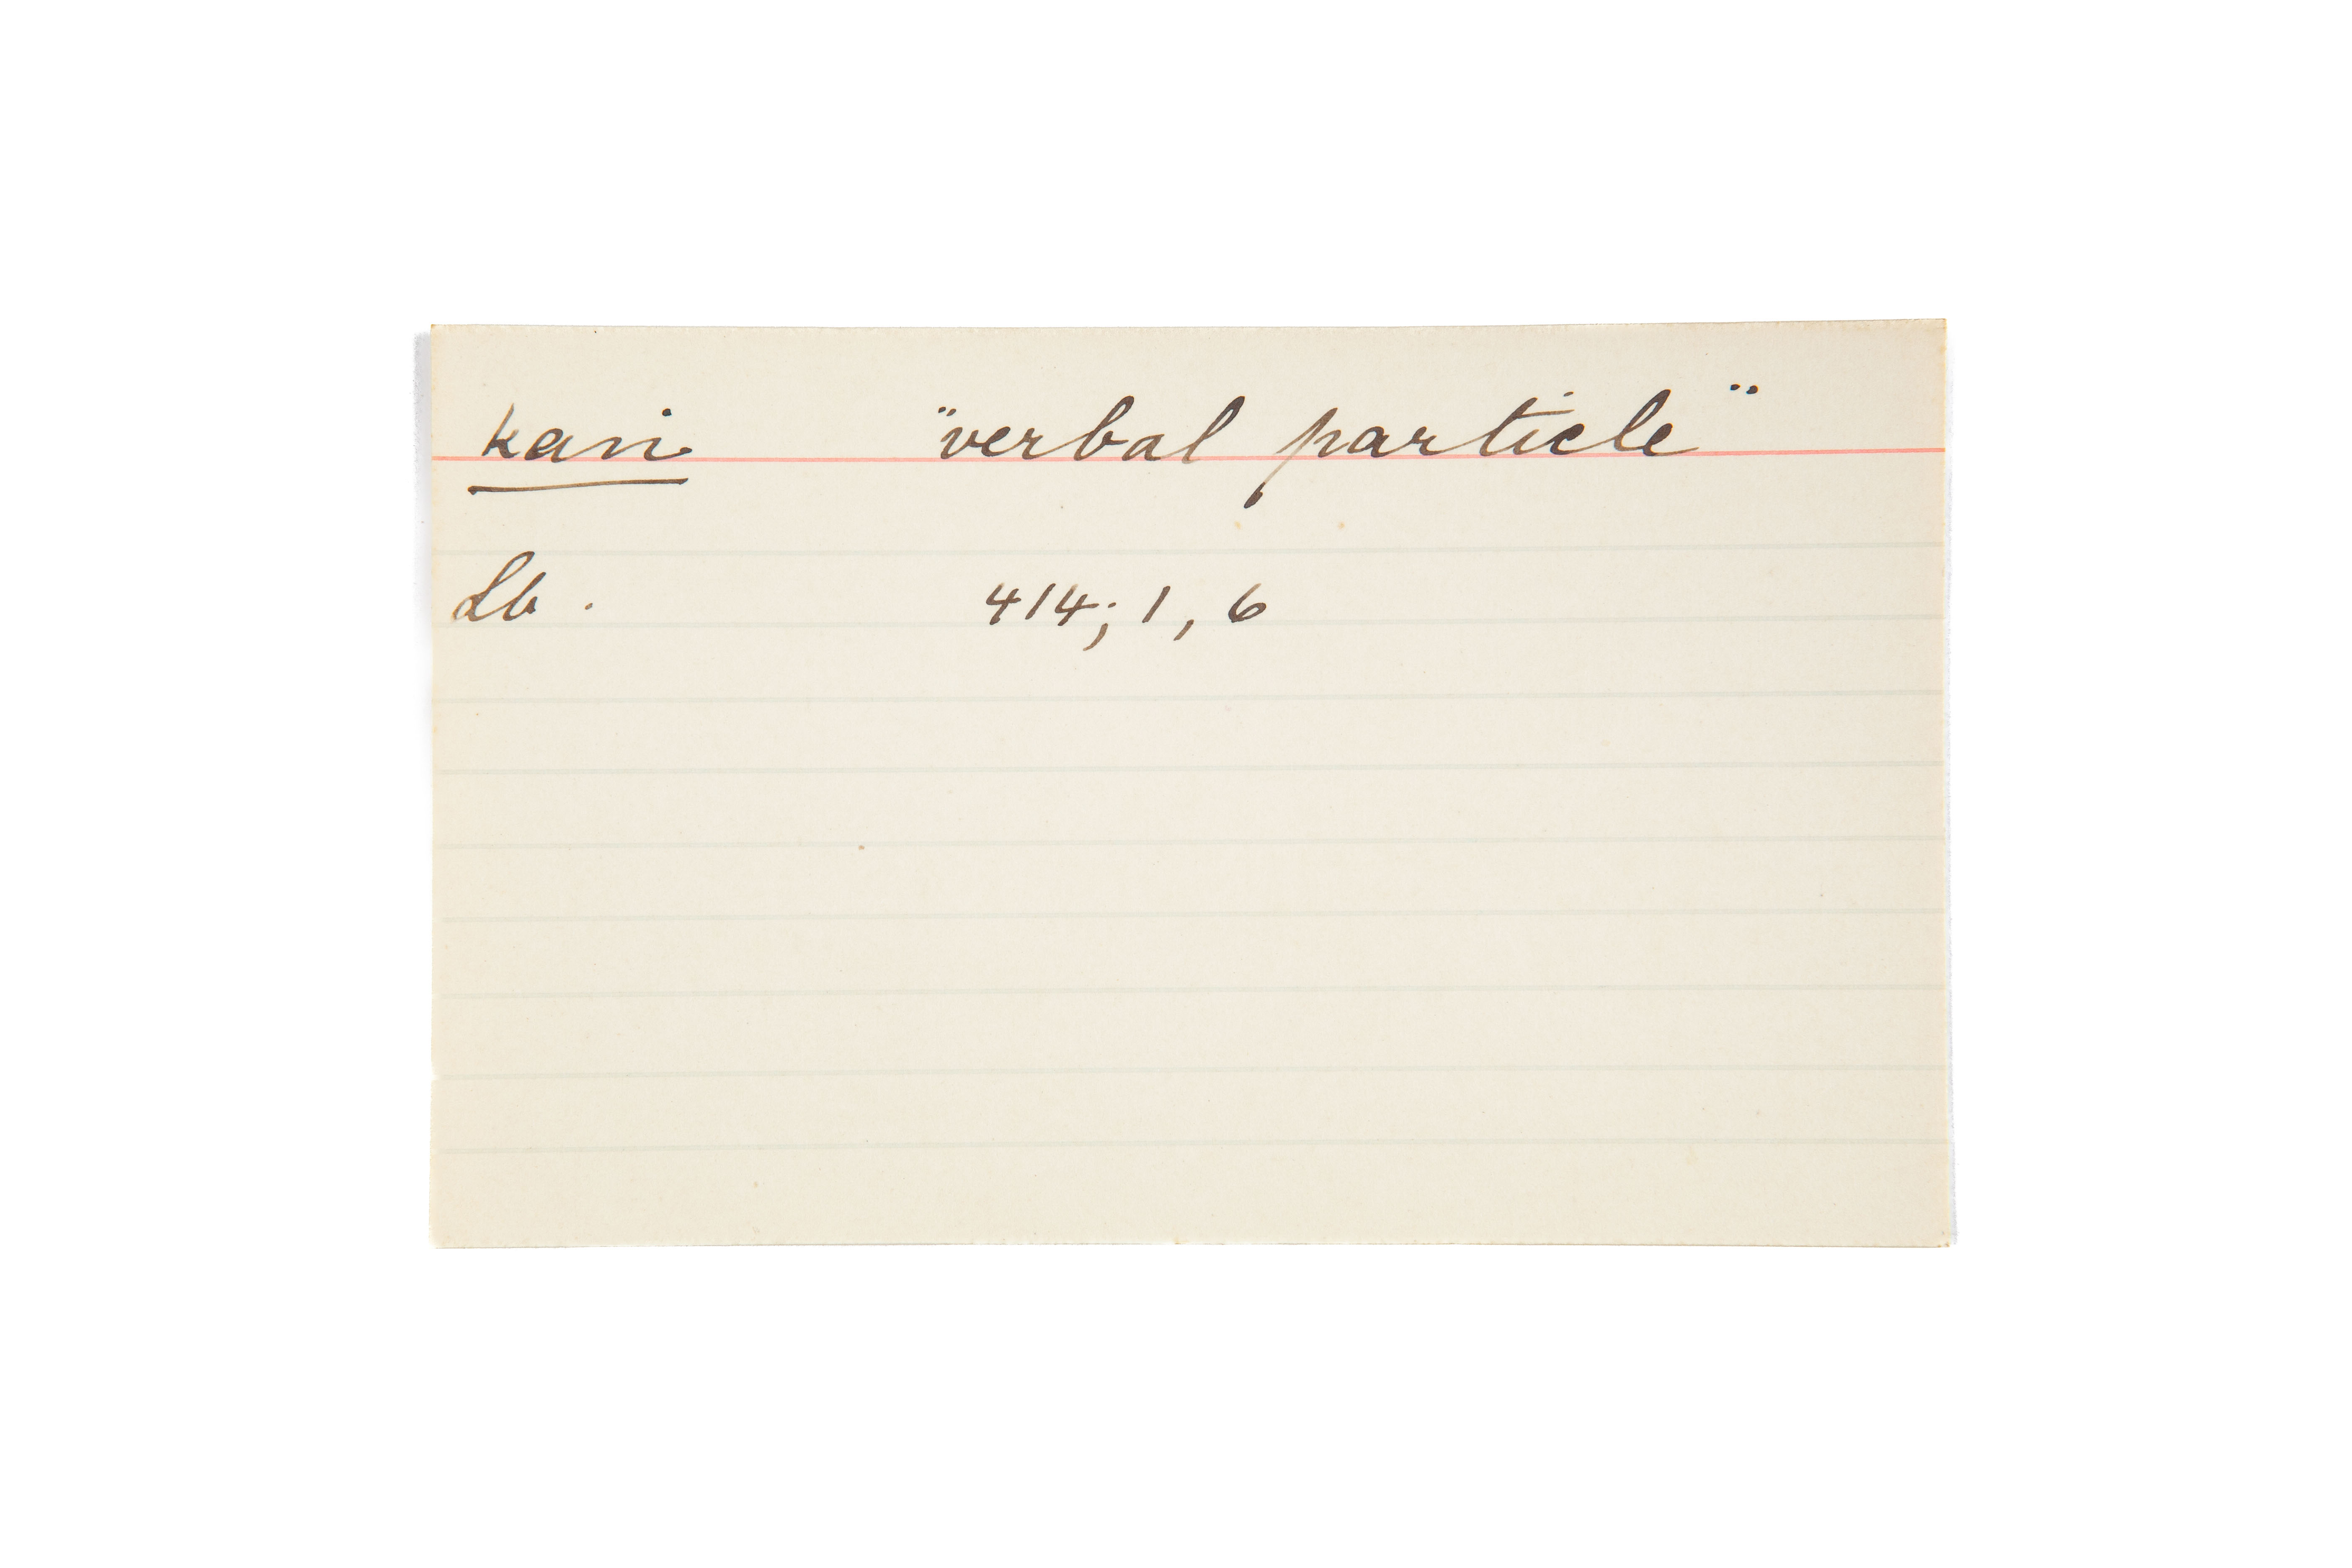 kani "verbal particle"
Lb . 414; 1, 6